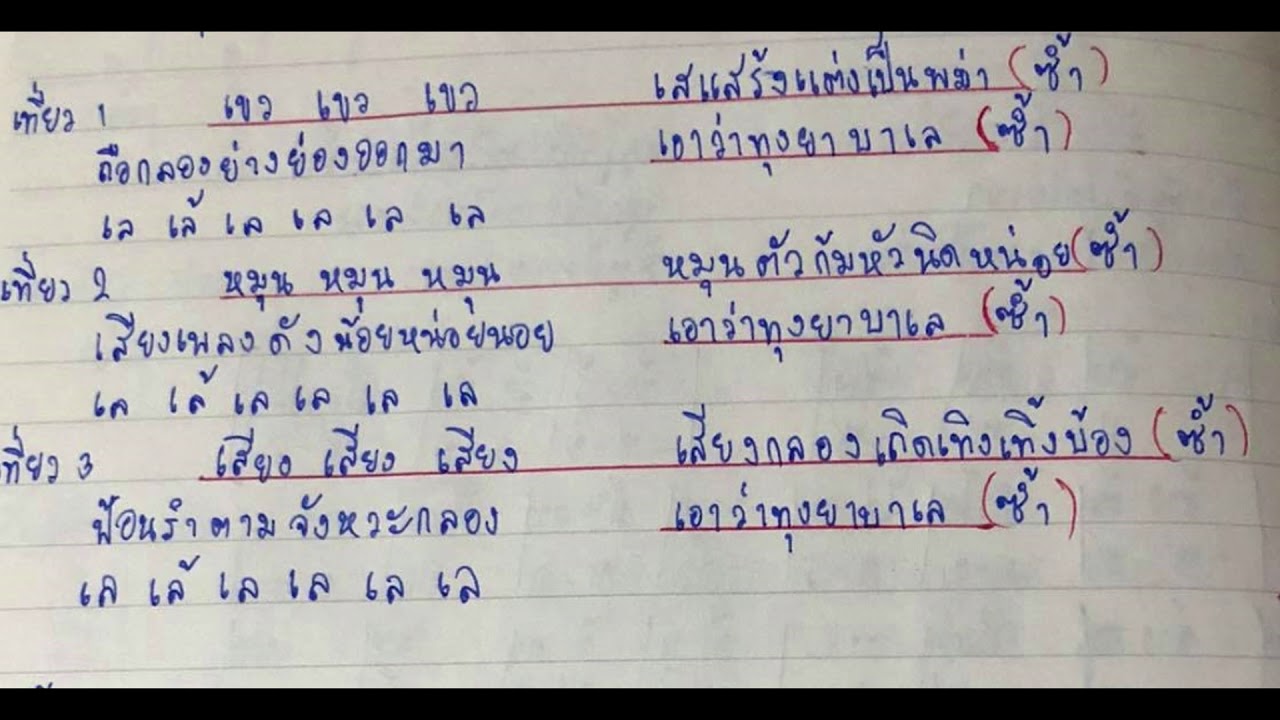 เที่ยว 1 เขว เขว เขว เสแสร้งแต่งเป็นพม่า (ซ้ำ)
ถือกลองย่างย่องออกมา เอาว่าทุงยาบาเล (ซ้ำ)
เล เล้ เล เล เล เล
เที่ยว 2 หมุน หมุน หมุน หมุนตัวก้มหัวนิดหน่อย (ซ้ำ)
เสียงเพลงดังน้อยหน่อยนอย เอาว่าทุงยาบาเล (ซ้ำ)
เล เล้ เล เล เล เล
ที่ยว 3 เสียง เสียง เสียง เสียงกลองเถิดเทิงเทิ้งบ้อง (ซ้ำ)
ฟ้อนรำตามจังหวะกลอง เอาว่าทุงยาบาเล (ซ้ำ)
เล เล้ เล เล เล เล